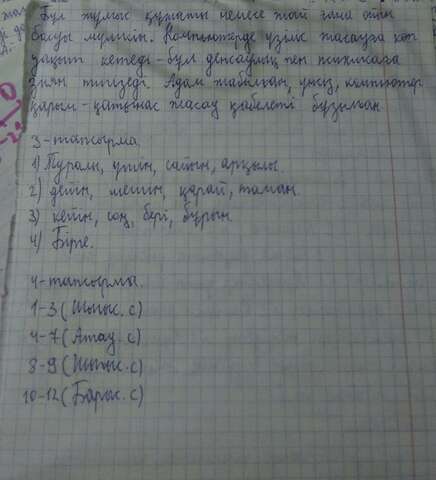 Бұл жұмыс құрылғы немесе жай ғана ойын
болуы мүмкін. Компьютерде үзіліс жасауға көп
уақыт кетеді - бұл денсаулық пен психикаға
зиян тигізеді. Адам жабылған, үнсіз, компьютер
қарым-қатынас жасау қабілеті бұзылған
3-тапсырма
1) Туралы, үшін, сайын, арқылы.
2) дейін, шейін, қарай, таман.
3) кейін, соң, бері, бұрын
4) Бірге.
4-тапсырма.
1-3 (Шығыс.с)
4-7 (Атау.с)
8-9 (Шығыс.с)
10-12 (Барыс.с)